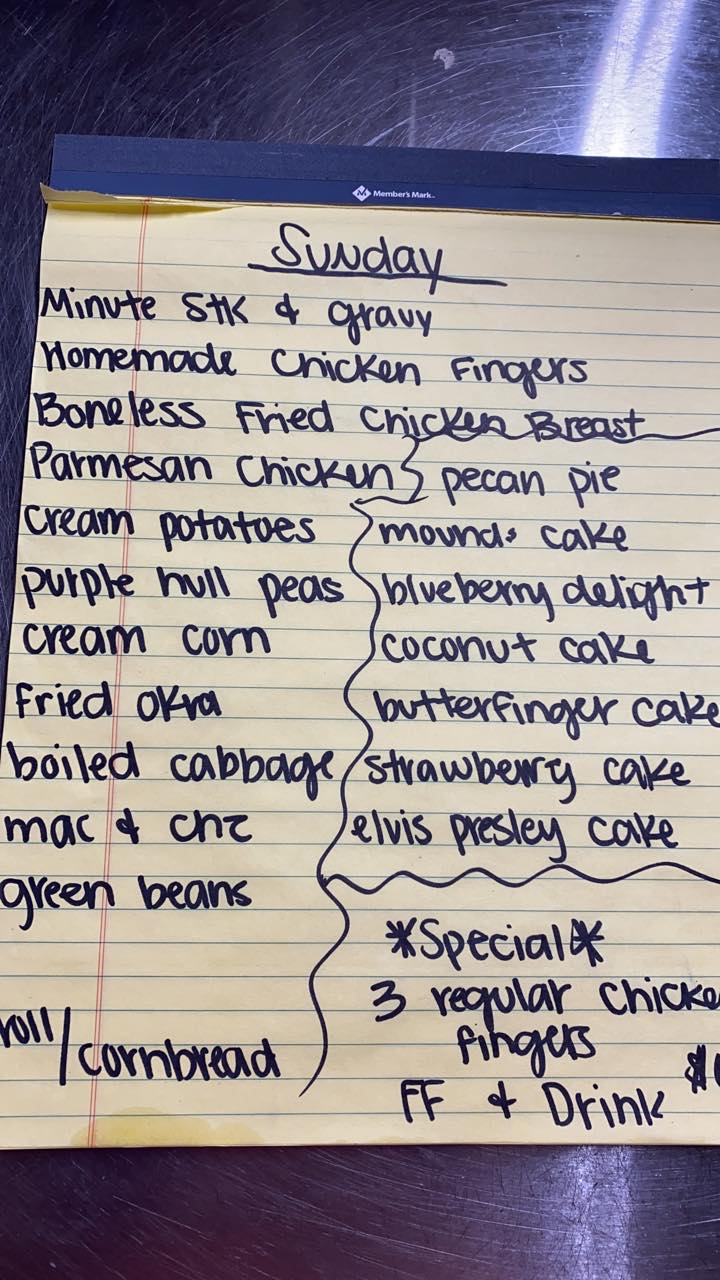 Member's Mark
Sunday
Minute Stk & gravy
Homemade Chicken Fingers
Boneless Fried Chicken Breast
Parmesan Chicken
cream potatoes
purple hull peas
cream corn
Fried Okra
boiled cabbage
mac & chz
green beans
roll/cornbread
pecan pie
mounds cake
blueberry delight
coconut cake
butterfinger cake
strawberry cake
elvis presley cake
*Special*
3 regular Chicke
fingers
FF & Drink $